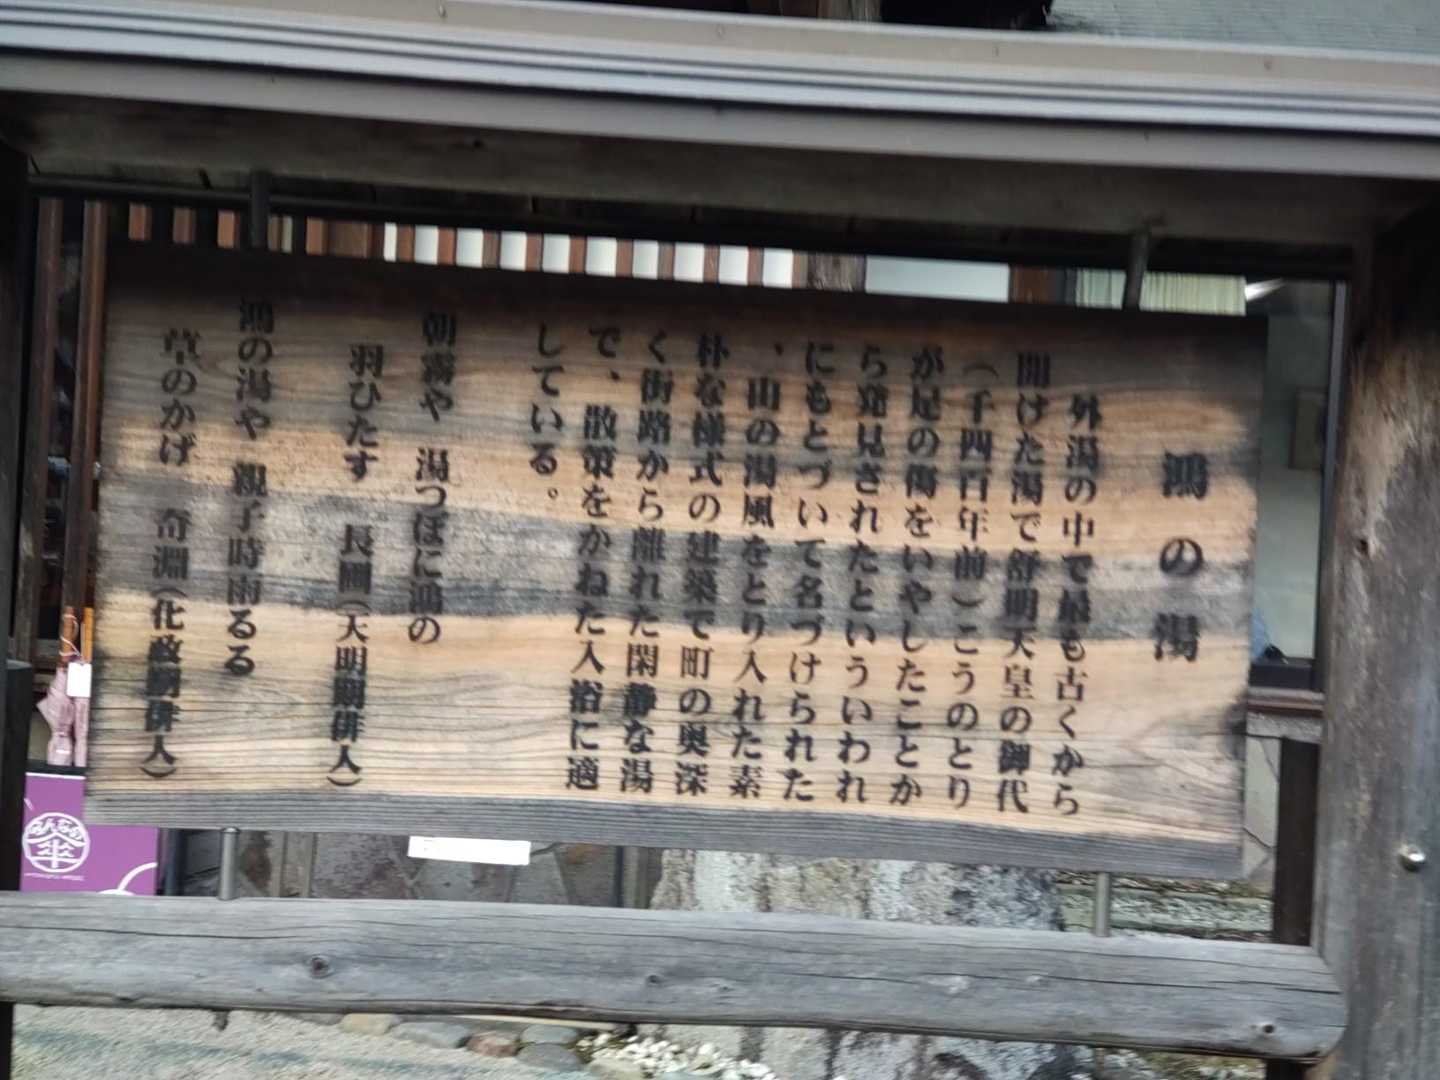 鴻の湯
外湯の中で最も古くから
開けた湯で舒明天皇の御代
（千四百年前）こうのとり
が足の傷をいやしたことか
ら発見されたといういわれ
にもとづいて名づけられた
、山の湯風をとり入れた素
朴な様式の建築で町の奥深
く街路から離れた閑静な湯
で、散策をかねた入浴に適
している。
朝霧や 湯つぼに鴻の
羽ひたす 長圃（天明期俳人）
鴻の湯や 親子時雨るる
草のかげ 奇淵（化政期俳人）
みんなの傘